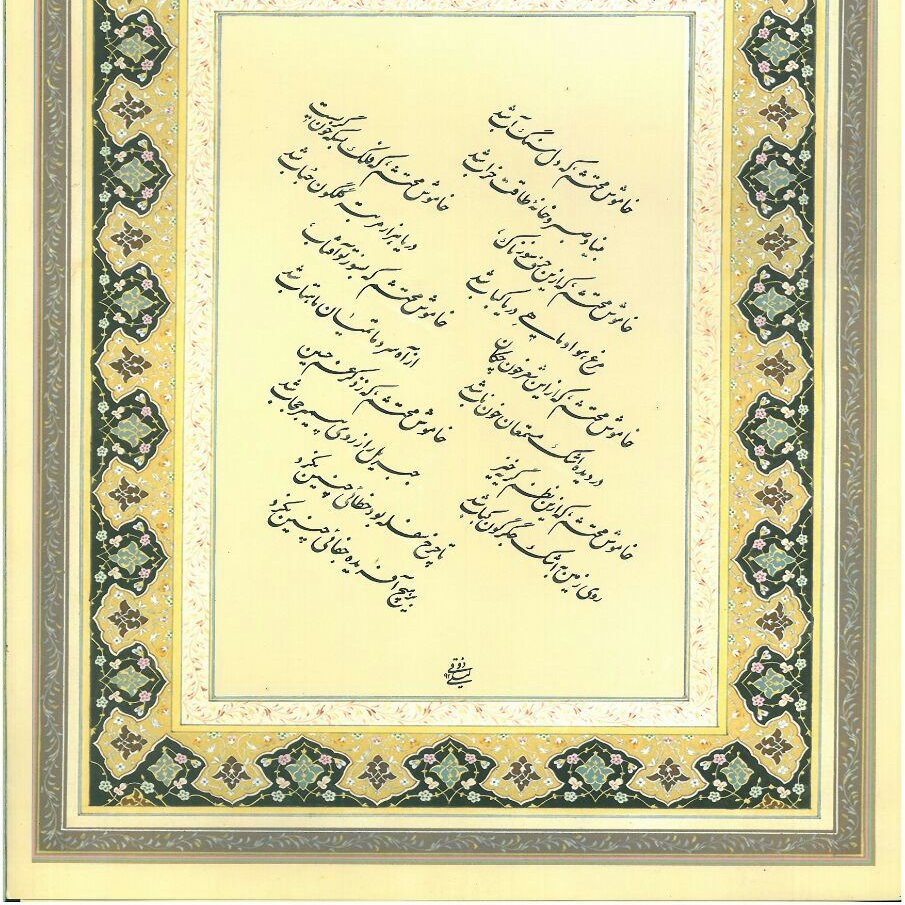 خاموش محتشم که دل سنگ آب شد
بنیاد صبر و خانهٔ طاقت خراب شد
خاموش محتشم که ازین حرف سوزناک
مرغ هوا و ماهی دریا کباب شد
خاموش محتشم که از این شعر خون چکان
در دیده اشک مستمعان خون ناب شد
خاموش محتشم که ازین نظم گریه خیز
روی زمین به اشک جگرگون کباب شد
خاموش محتشم که فلک بسکه خون گریست
دریا هزار مرتبه گلگون حباب شد
خاموش محتشم که بسوز تو آفتاب
از آه سرد ماتمیان ماهتاب شد
خاموش محتشم که ز ذکر غم حسین
جبریل را ز روی پیمبر حجاب شد
تا چرخ سفله بود خطائی چنین نکرد
بر هیچ آفریده جفائی چنین نکرد